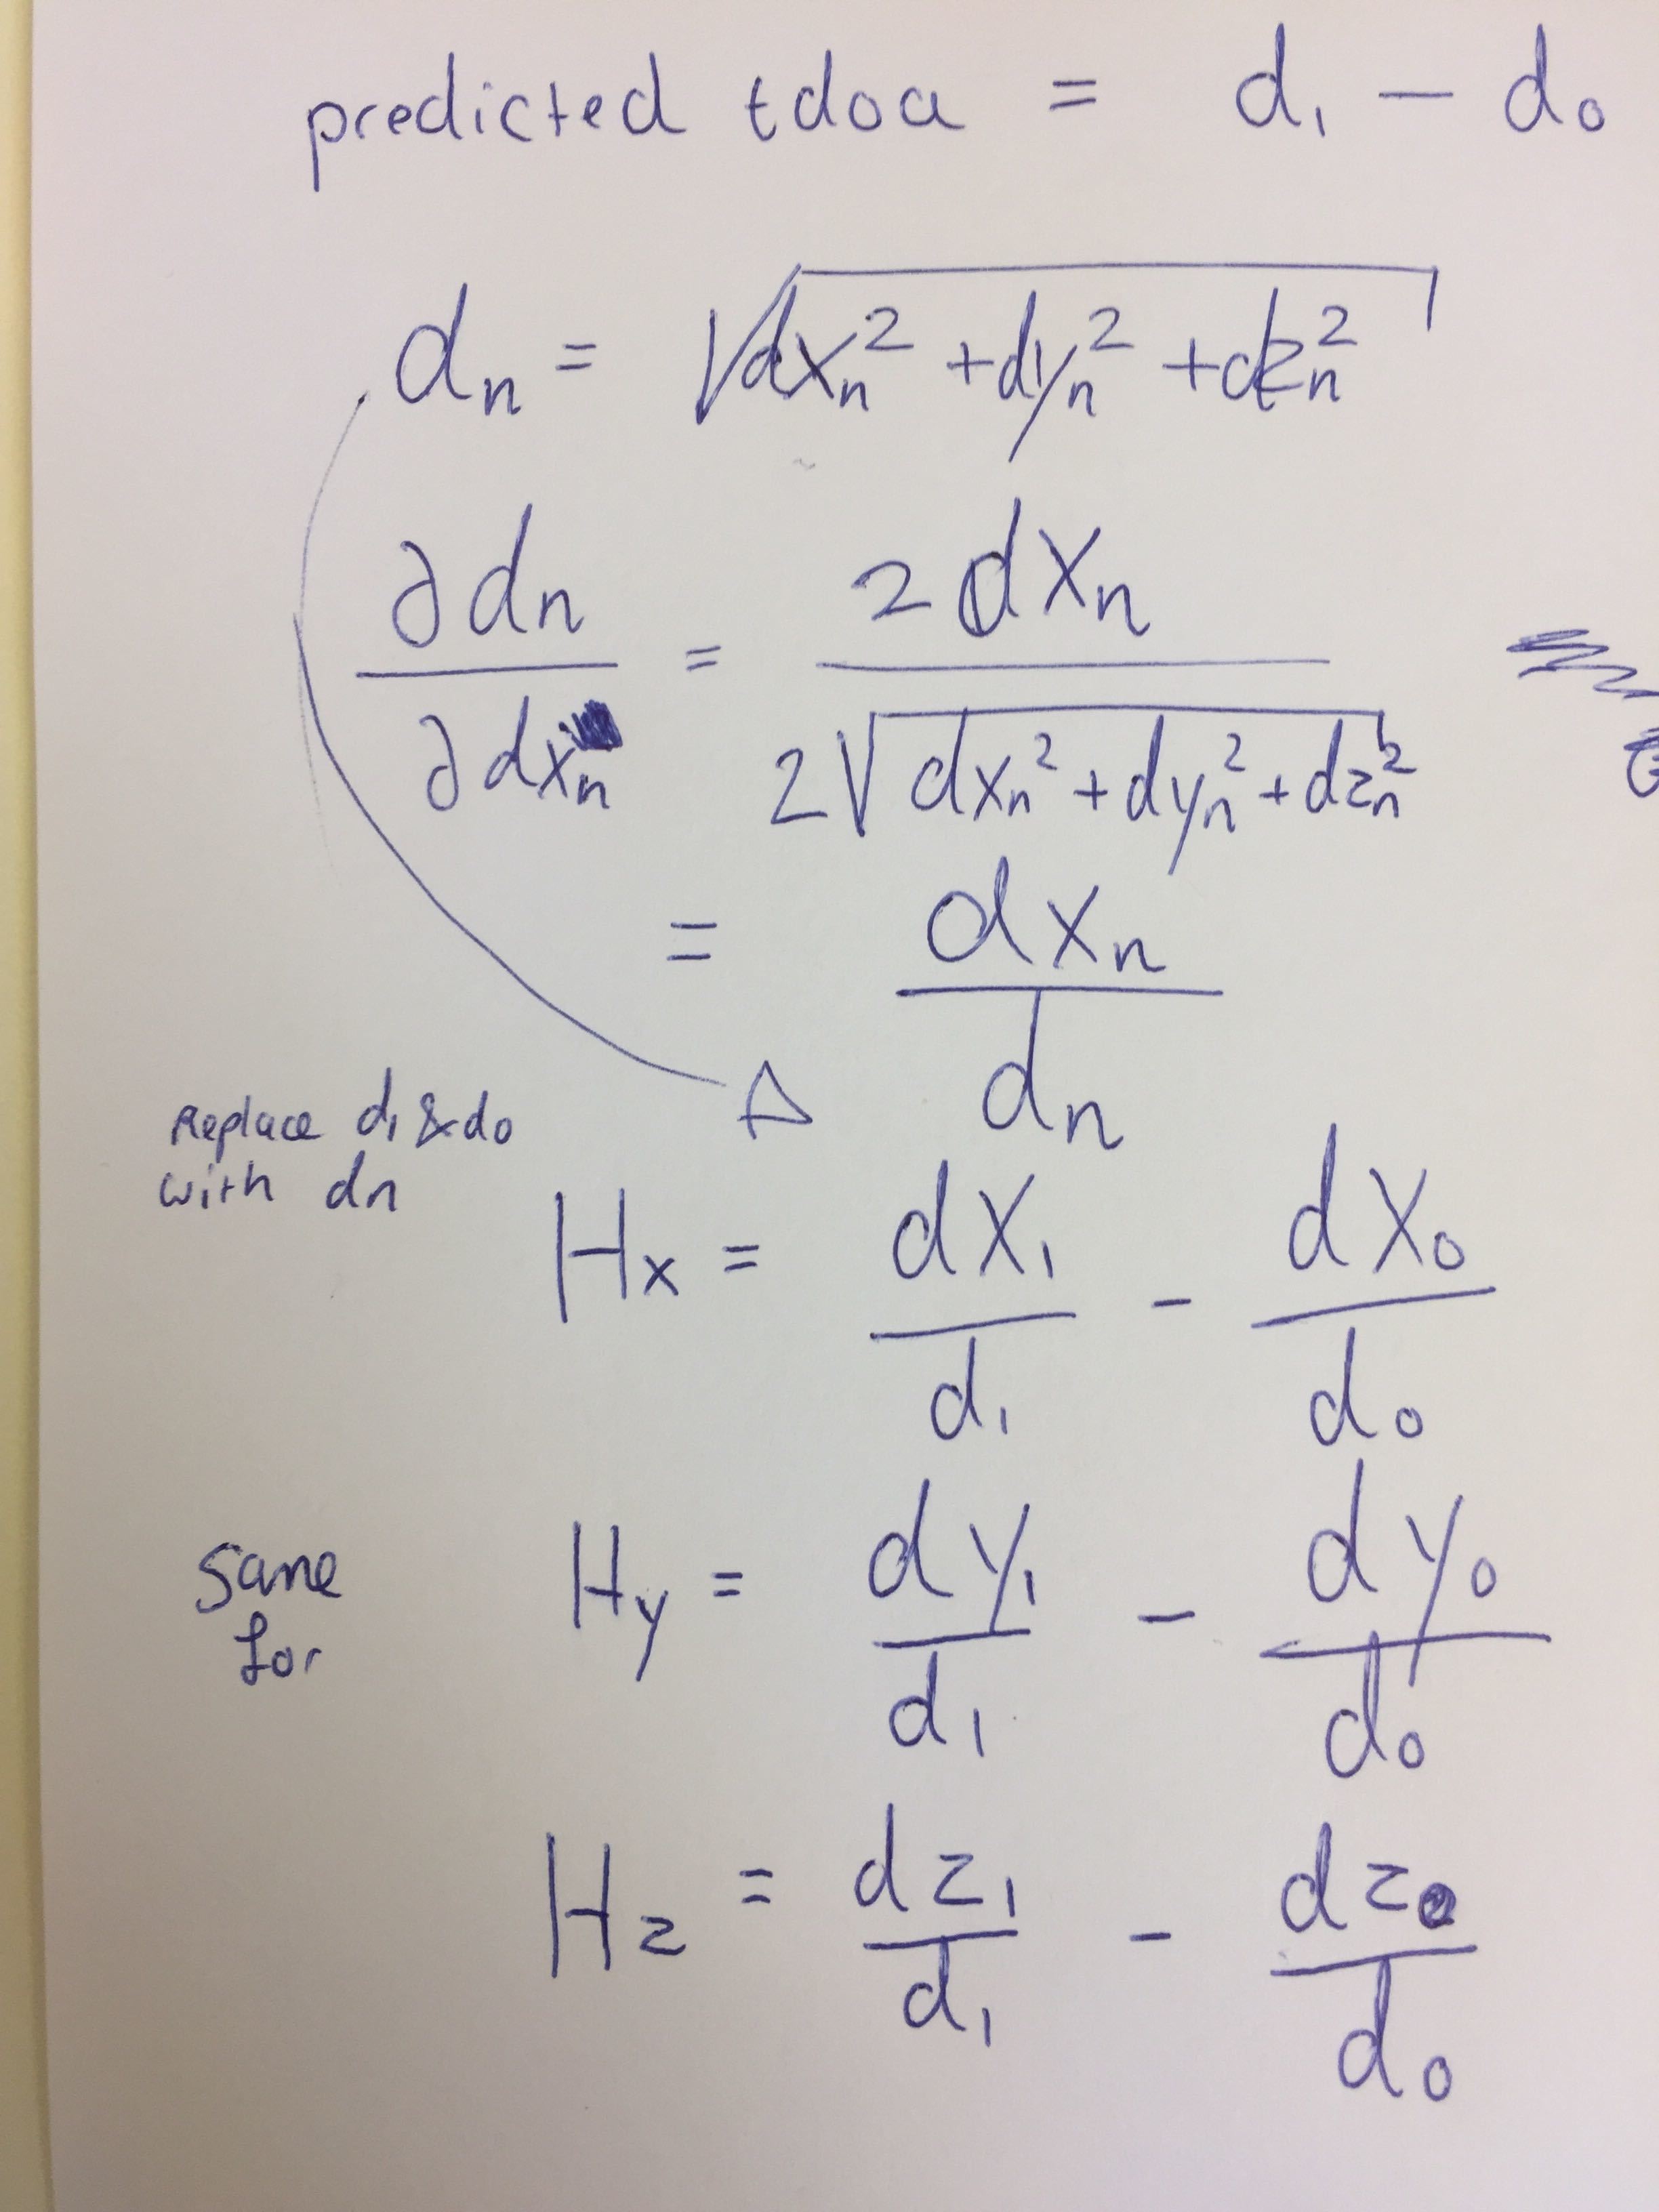 predicted tdoa = d₁ − d₀
dₙ = √(dxₙ² + dyₙ² + dzₙ²)
∂dₙ / ∂dxₙ = 2dxₙ / 2√(dxₙ² + dyₙ² + dzₙ²)
= dxₙ / dₙ
Replace d₁ & d₀
with dn
Hx = dx₁ / d₁ - dx₀ / d₀
same
for
Hy = dy₁ / d₁ - dy₀ / d₀
Hz = dz₁ / d₁ - dz₀ / d₀